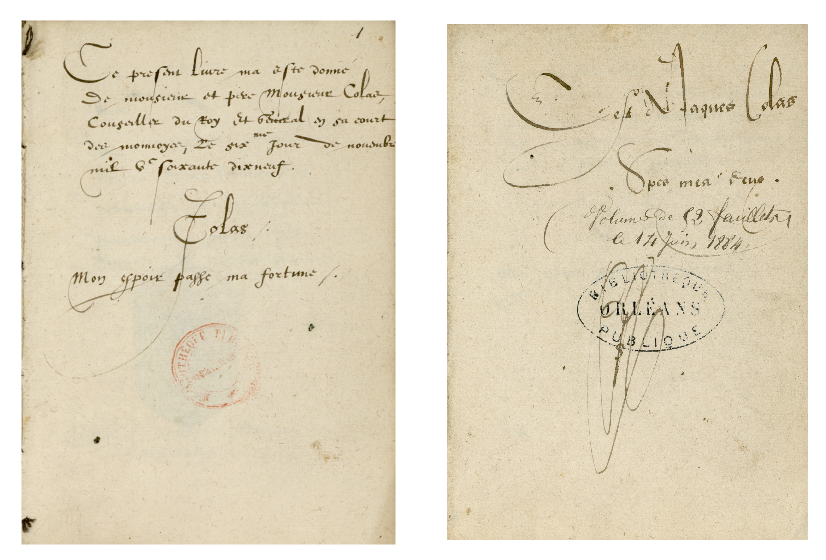 1
Ce present livre ma este donne
De monsieur et pere Monsieur Colas,
Conseiller du Roy Et general en sa court
des monnoyes, Le six me Jour de novembre
mil vc soixante dixneuf.
Colas
Mon espoir passe ma fortune
C'est A Jaques Colas
Spes mea deus.
Volume de 12 feuillets
le 14 Juin 1884
BIBLIOTHEQUE
ORLÉANS
PUBLIQUE